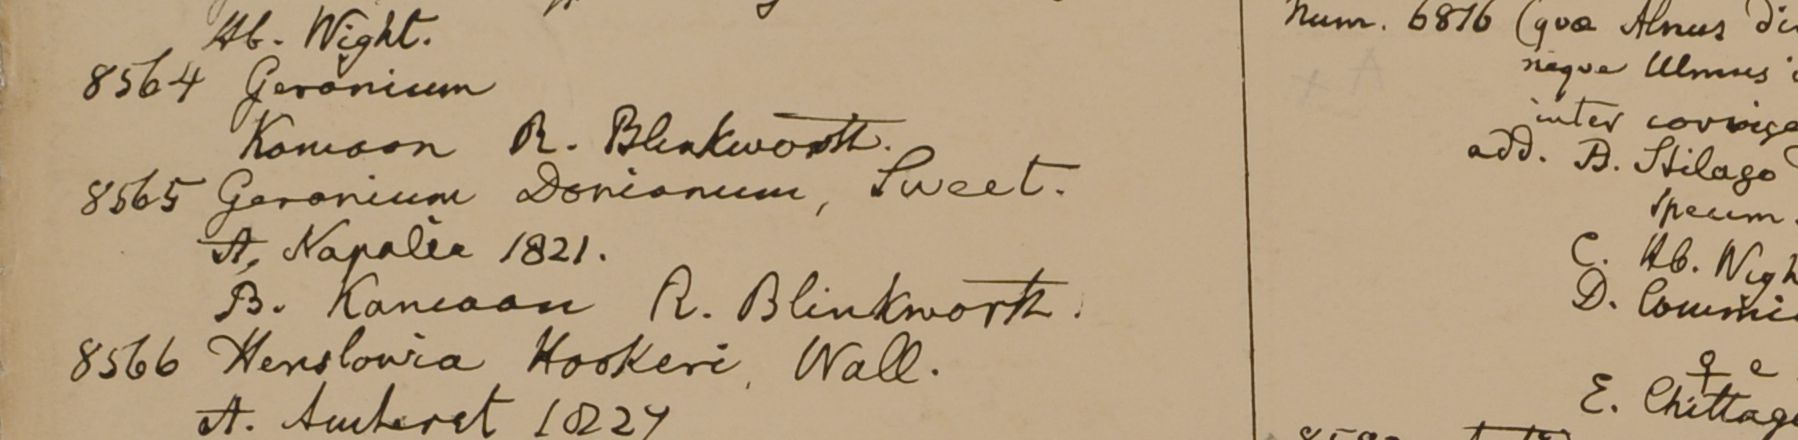 Hb. Wight.
8564 Geranium
Kamaon R. Blinkworth.
8565 Geranium Donianum, Sweet.
A. Napalia 1821.
B. Kamaon R. Blinkworth.
8566 Henslowia Hookeri, Wall.
A. Amherst 1827
Num. 6816 (quæ Alnus
neque Ulmus
inter
add. B. Stilago
specim.
C. Hb. Wigh
D.
E. Chittag